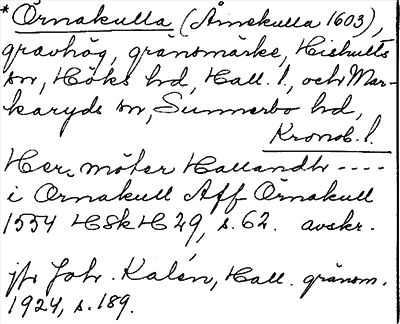 *Örnakulla (Åmekulla 1603),
gravhög, gränsmärke, Hishults
sn, Höks hd, Hall. l., och Mar-
karyds sn, Sunnerbo hd,
Kronob. l.
Her møter Hallandh ----
i Ornakull Aff Örnakull
1554 HSkH 29, s. 62. avskr.
jfr Joh. Kalén, Hall. gränsm.
1924, s. 189.